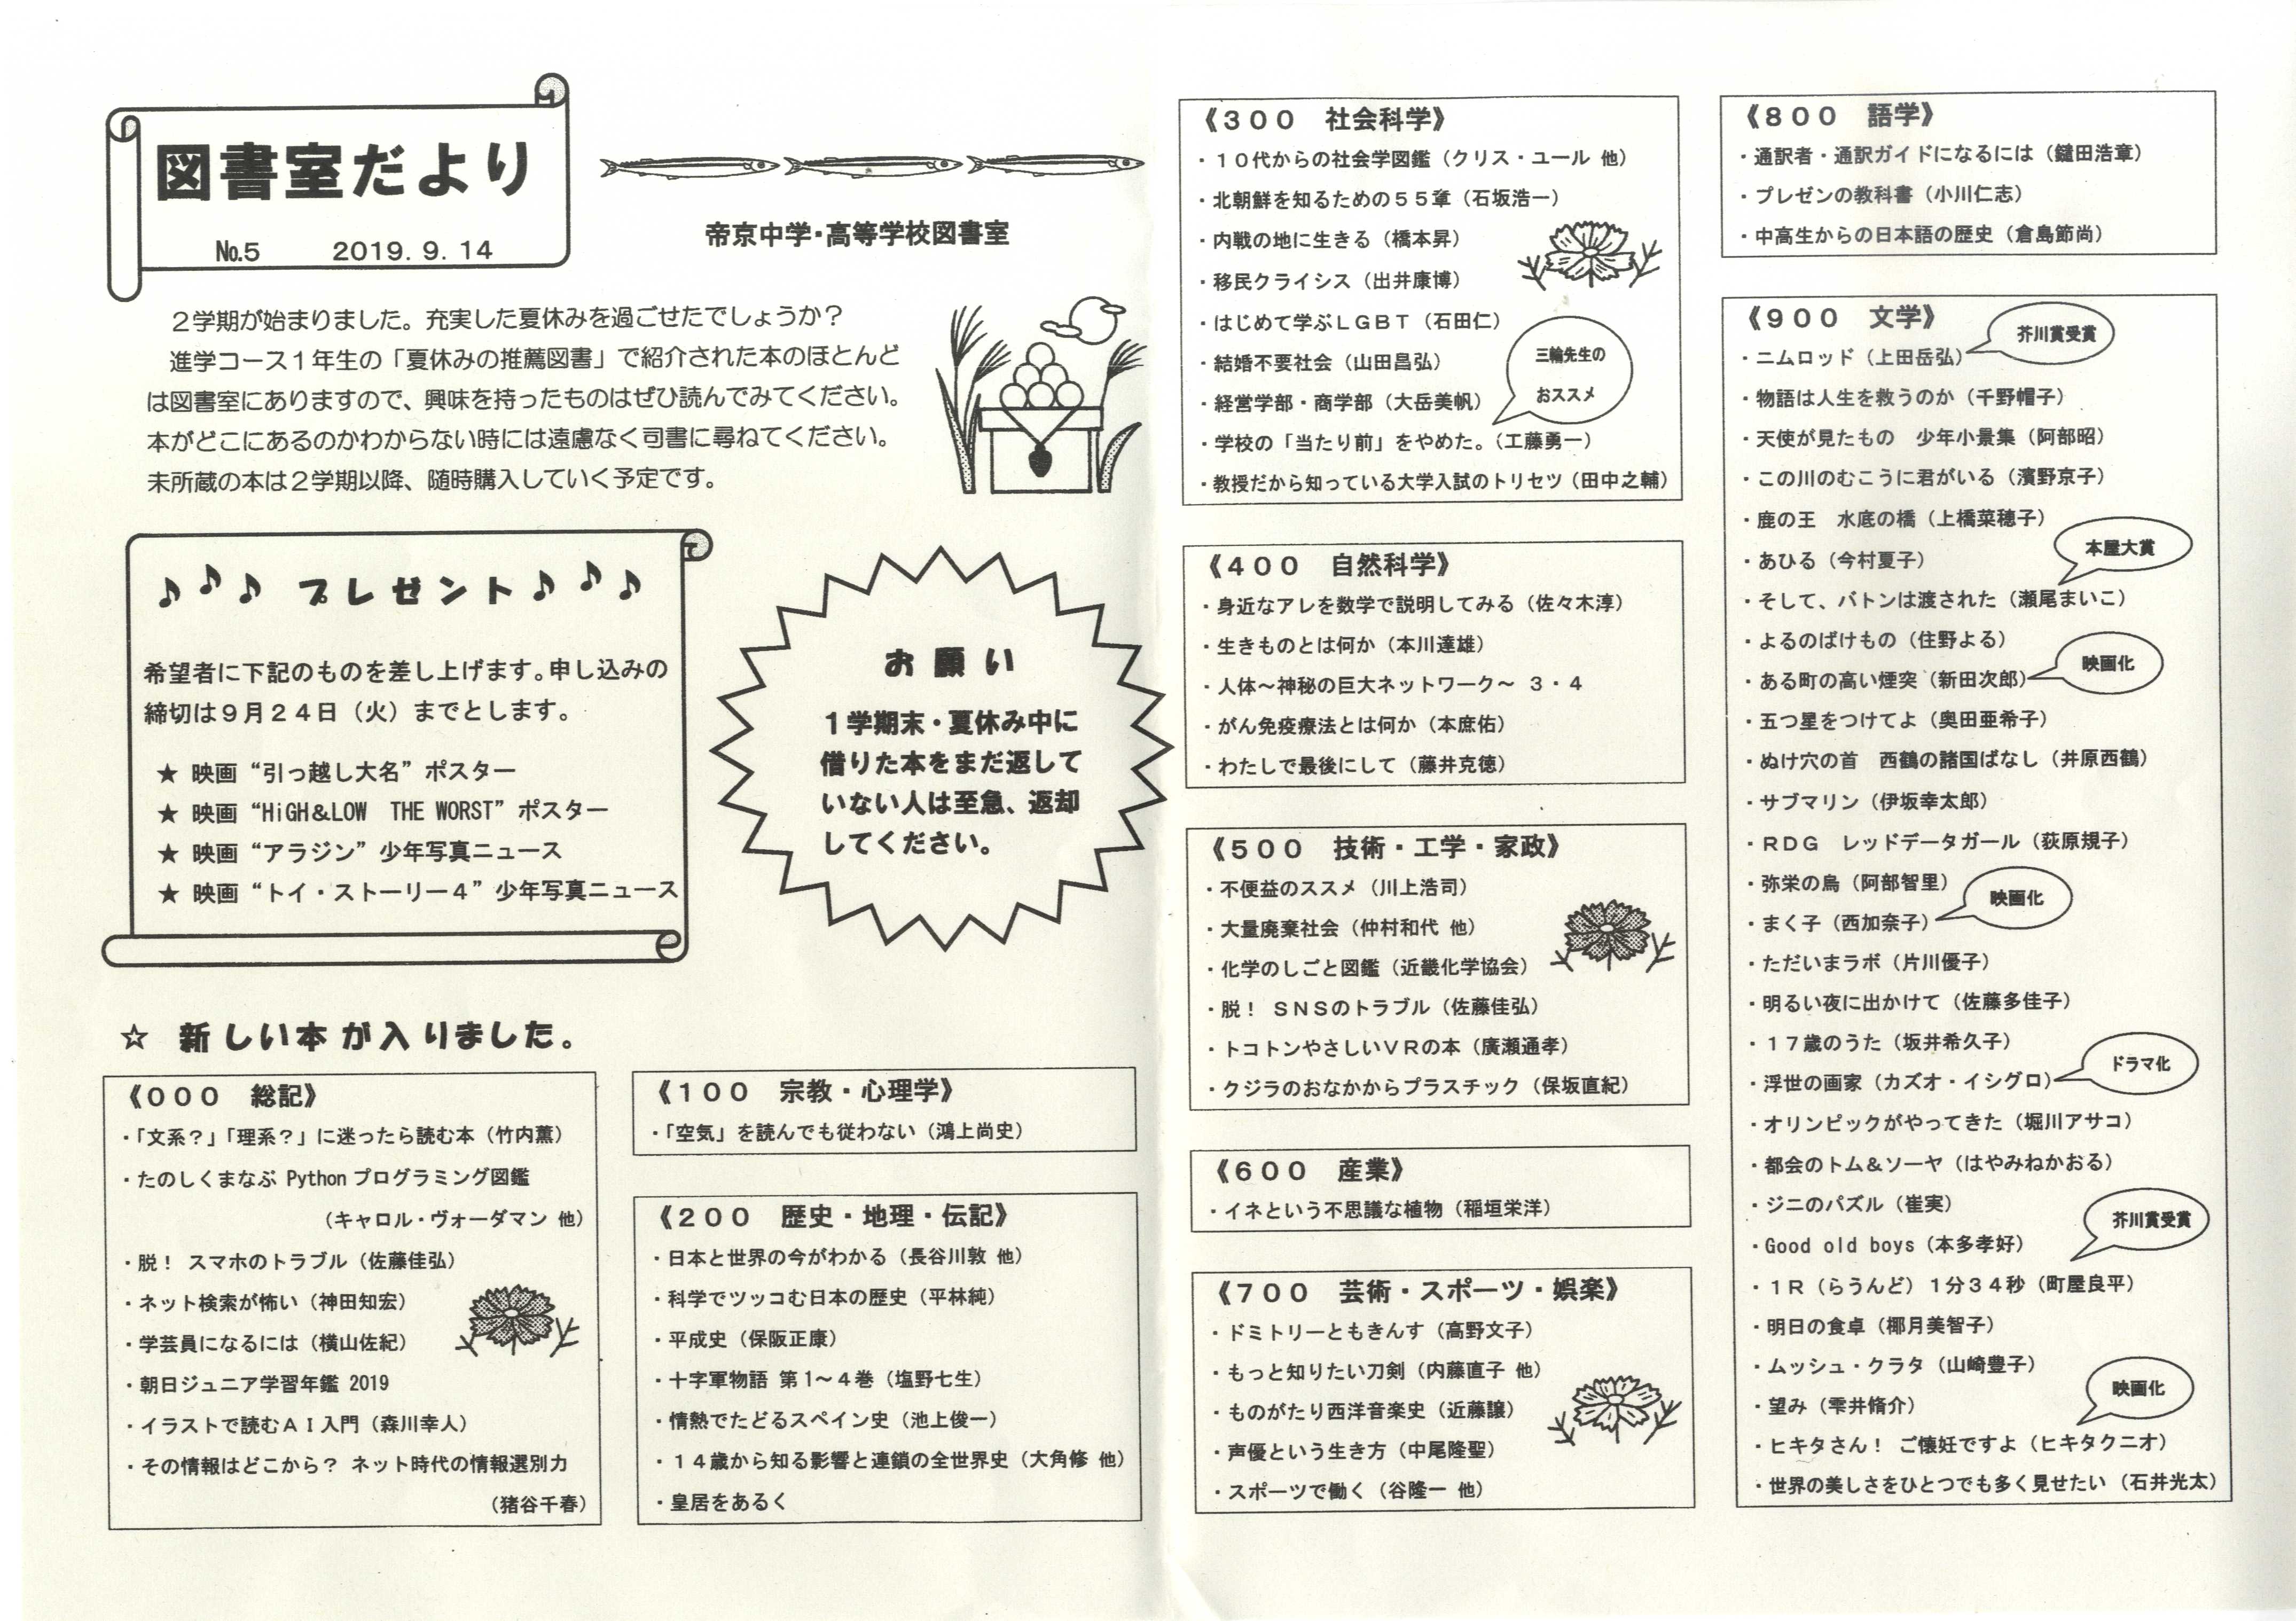 図書室だより
№5　2019. 9. 14
帝京中学・高等学校図書室
２学期が始まりました。充実した夏休みを過ごせたでしょうか？
進学コース１年生の「夏休みの推薦図書」で紹介された本のほとんど
は図書室にありますので、興味を持ったものはぜひ読んでみてください。
本がどこにあるのかわからない時には遠慮なく司書に尋ねてください。
未所蔵の本は２学期以降、随時購入していく予定です。
♪♪♪ プレゼント♪♪♪
希望者に下記のものを差し上げます。申し込みの
締切は９月２４日（火）までとします。
★ 映画“引っ越し大名”ポスター
★ 映画“HiGH＆LOW　THE WORST”ポスター
★ 映画“アラジン”少年写真ニュース
★ 映画“トイ・ストーリー４”少年写真ニュース
お願い
１学期末・夏休み中に
借りた本をまだ返して
いない人は至急、返却
してください。
☆ 新しい本が入りました。
《０００　総記》
・「文系？」「理系？」に迷ったら読む本（竹内薫）
・たのしくまなぶ Python プログラミング図鑑
（キャロル・ヴォーダマン 他）
・脱！ スマホのトラブル（佐藤佳弘）
・ネット検索が怖い（神田知宏）
・学芸員になるには（横山佐紀）
・朝日ジュニア学習年鑑 2019
・イラストで読むＡＩ入門（森川幸人）
・その情報はどこから？ ネット時代の情報選別力
（猪谷千春）
《１００　宗教・心理学》
・「空気」を読んでも従わない（鴻上尚史）
《２００　歴史・地理・伝記》
・日本と世界の今がわかる（長谷川敦 他）
・科学でツッコむ日本の歴史（平林純）
・平成史（保阪正康）
・十字軍物語 第1～４巻（塩野七生）
・情熱でたどるスペイン史（池上俊一）
・１４歳から知る影響と連鎖の全世界史（大角修 他）
・皇居をあるく
《３００　社会科学》
・１０代からの社会学図鑑（クリス・ユール 他）
・北朝鮮を知るための５５章（石坂浩一）
・内戦の地に生きる（橋本昇）
・移民クライシス（出井康博）
・はじめて学ぶＬＧＢＴ（石田仁）
・結婚不要社会（山田昌弘）
・経営学部・商学部（大岳美帆）
三輪先生の
おススメ
・学校の「当たり前」をやめた。（工藤勇一）
・教授だから知っている大学入試のトリセツ（田中之輔）
《４００　自然科学》
・身近なアレを数学で説明してみる（佐々木淳）
・生きものとは何か（本川達雄）
・人体～神秘の巨大ネットワーク～ ３・４
・がん免疫療法とは何か（本庶佑）
・わたしで最後にして（藤井克徳）
《５００　技術・工学・家政》
・不便益のススメ（川上浩司）
・大量廃棄社会（仲村和代 他）
・化学のしごと図鑑（近畿化学協会）
・脱！ ＳＮＳのトラブル（佐藤佳弘）
・トコトンやさしいＶＲの本（廣瀬通孝）
・クジラのおなかからプラスチック（保坂直紀）
《６００　産業》
・イネという不思議な植物（稲垣栄洋）
《７００　芸術・スポーツ・娯楽》
・ドミトリーともきんす（高野文子）
・もっと知りたい刀剣（内藤直子 他）
・ものがたり西洋音楽史（近藤譲）
・声優という生き方（中尾隆聖）
・スポーツで働く（谷隆一 他）
《８００　語学》
・通訳者・通訳ガイドになるには（鑓田浩章）
・プレゼンの教科書（小川仁志）
・中高生からの日本語の歴史（倉島節尚）
《９００　文学》
芥川賞受賞
・ニムロッド（上田岳弘）
・物語は人生を救うのか（千野帽子）
・天使が見たもの　少年小景集（阿部昭）
・この川のむこうに君がいる（濱野京子）
・鹿の王　水底の橋（上橋菜穂子）
・あひる（今村夏子）
本屋大賞
・そして、バトンは渡された（瀬尾まいこ）
・よるのばけもの（住野よる）
・ある町の高い煙突（新田次郎）
映画化
・五つ星をつけてよ（奥田亜希子）
・ぬけ穴の首　西鶴の諸国ばなし（井原西鶴）
・サブマリン（伊坂幸太郎）
・ＲＤＧ　レッドデータガール（荻原規子）
・弥栄の烏（阿部智里）
・まく子（西加奈子）
映画化
・ただいまラボ（片川優子）
・明るい夜に出かけて（佐藤多佳子）
・１７歳のうた（坂井希久子）
・浮世の画家（カズオ・イシグロ）
ドラマ化
・オリンピックがやってきた（堀川アサコ）
・都会のトム＆ソーヤ（はやみねかおる）
・ジニのパズル（崔実）
・Good old boys（本多孝好）
芥川賞受賞
・１Ｒ（らうんど）１分３４秒（町屋良平）
・明日の食卓（椰月美智子）
・ムッシュ・クラタ（山崎豊子）
・望み（雫井脩介）
映画化
・ヒキタさん！ ご懐妊ですよ（ヒキタクニオ）
・世界の美しさをひとつでも多く見せたい（石井光太）